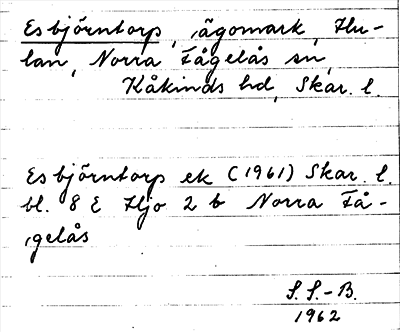 Esbjörntorp, ägomark, Hu-
lan, Norra Fågelås sn,
Kåkinds hd, Skar. l.
Esbjörntorp ek (1961) Skar. l.
bl. 8 E Hjo 2 b Norra Få-
gelås
S.S.-B.
1962